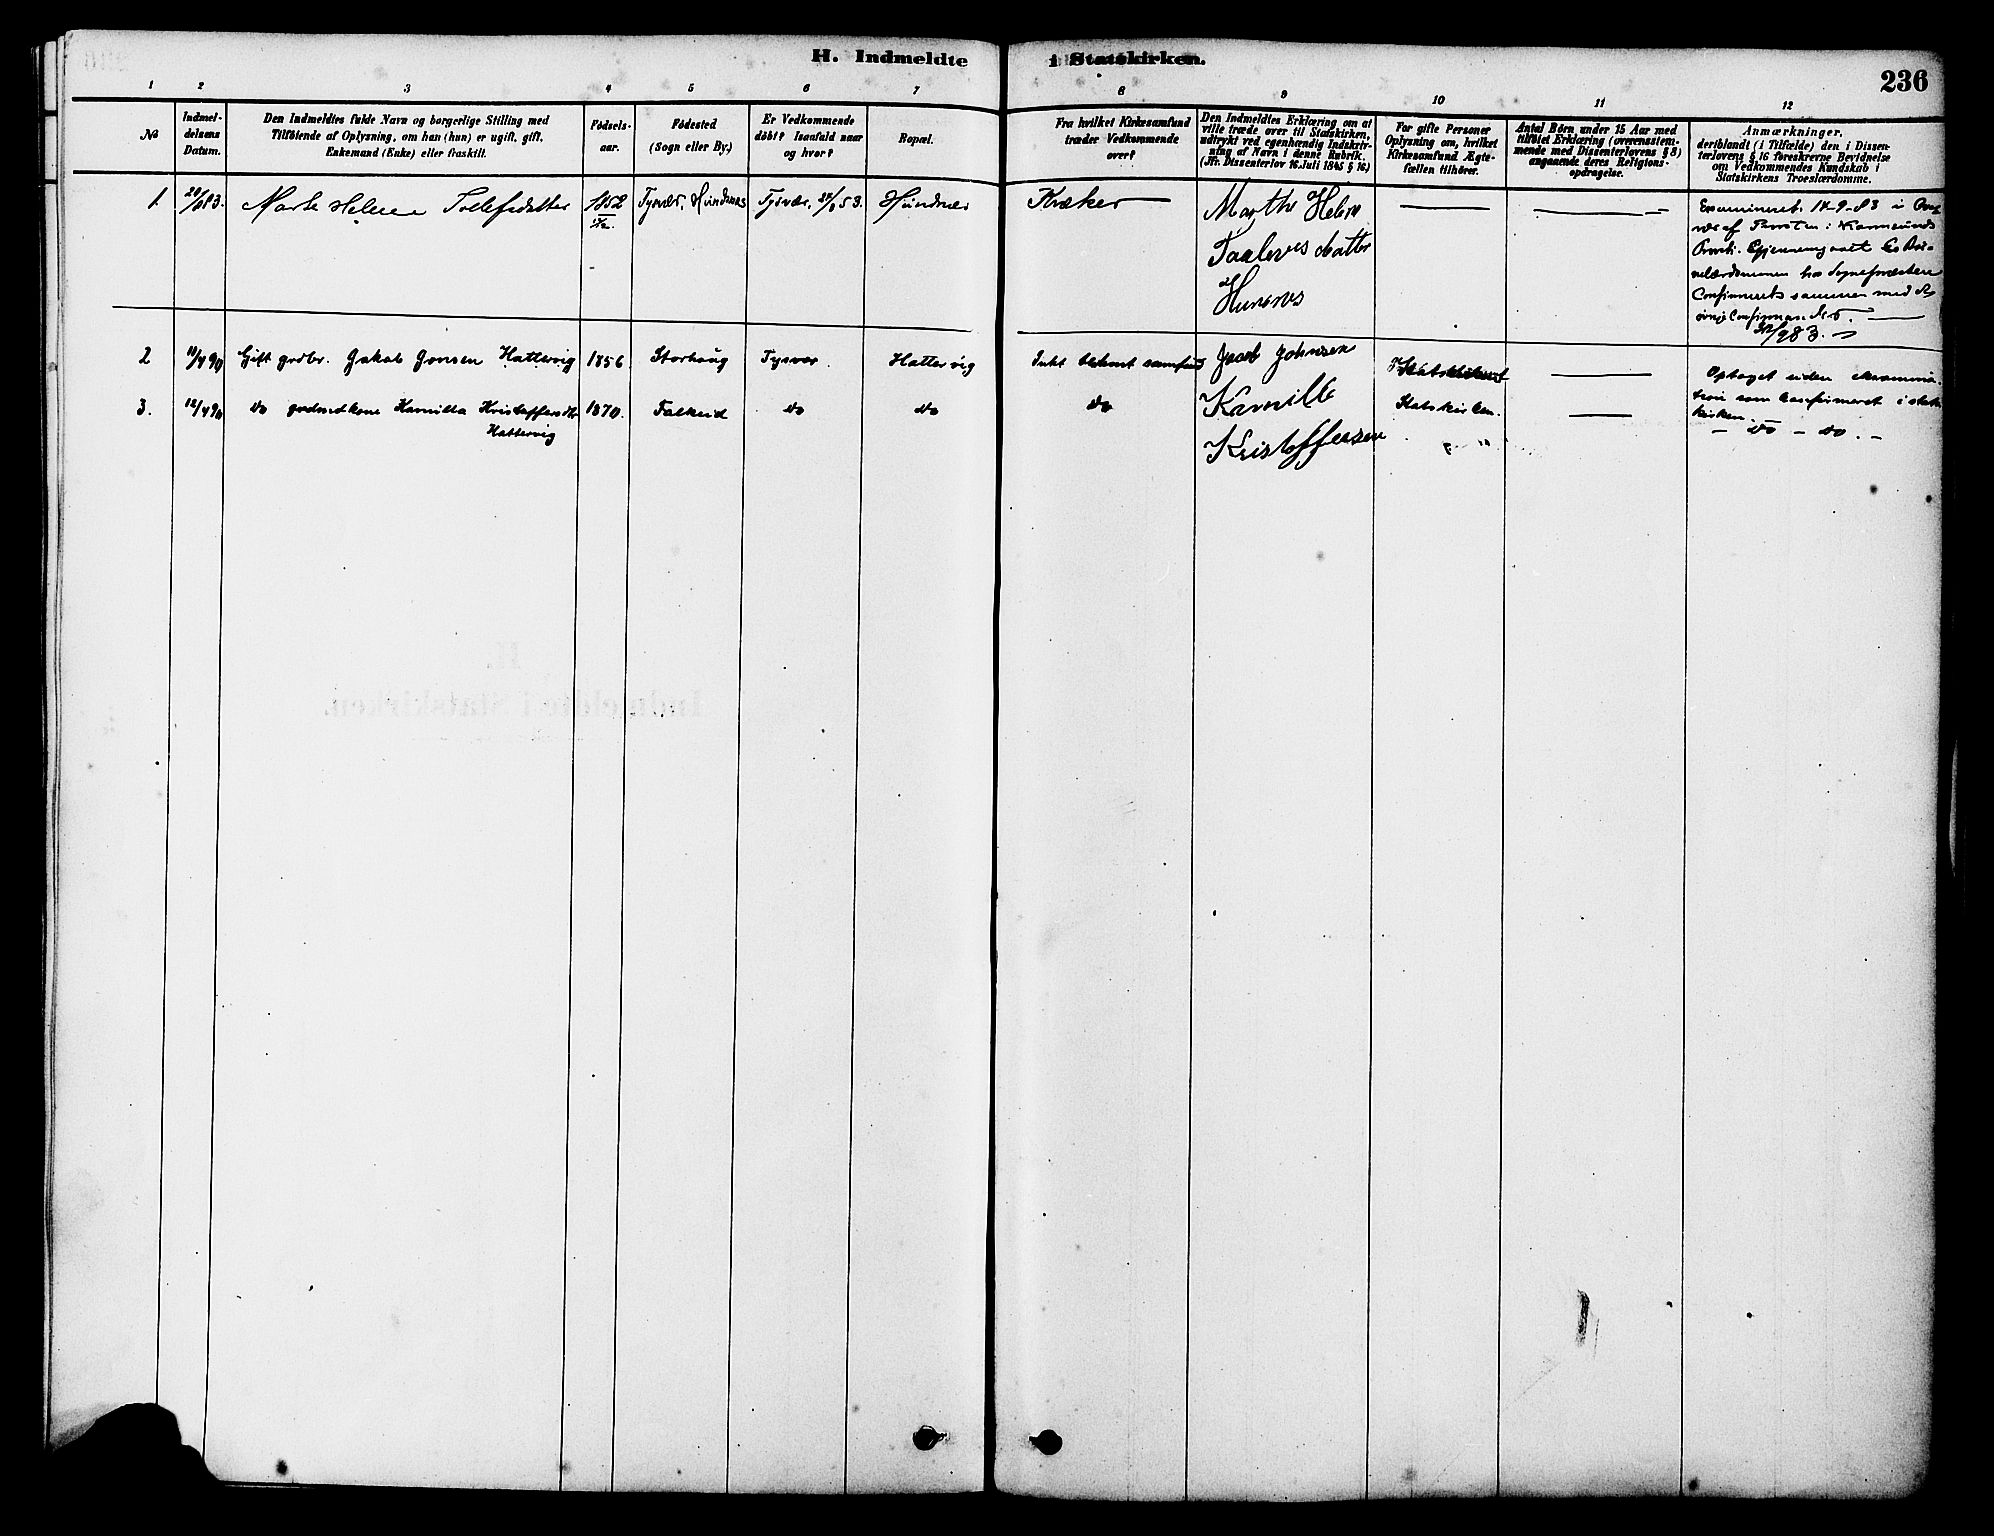 H. Indmeldte i Statskirken.
236
1 2 3 4 5 6 7 8 9 10 11 12
No
Indmeldelsens Datum.
Den Indmeldtes fulde Navn og borgerlige Stilling med
Tilföiende af Oplysning, om han (hun) er ugift, gift,
Enkemand (Enke) eller fraskilt.
Födsels-
aar.
Födested
(Sogn eller By.)
Er Vedkommende
döbt? Isaafald naar
og hvor?
Bopæl.
Fra hvilket Kirkesamfund
træder Vedkommende
over?
Den Indmeldtes Erklæring om at
ville træde over til Statskirken,
udtrykt ved egenhændig Indskriv-
ning af Navn i denne Rubrik.
(Jfr. Dissenterlov 16. Juli 1845 § 16.)
For gifte Personer
Oplysning om, hvilket
Kirkesamfund Ægte-
fællen tilhörer.
Antal Börn under 15 Aar med
tilföiet Erklæring (overensstem-
mende med Dissenterlovens § 8)
angaaende deres Religions-
opdragelse.
Anmærkninger,
deriblandt (i Tilfælde) den i Dissen-
terlovens § 16 foreskrevne Bevidnelse
om Vedkommendes Kundskab i
Statskirkens Troeslærdomme.
1. Marta Helene Tollefsdatter 1852 Tysvær, Hundsnæs Tysvær, Hundnæs Kvæker
Marthe Helene
Taalevesdatter
Examineret 14-9-83 i
af Provsten i Karmsunds
Provsti. Gjennemgaaet
hos Sognepræsten
Confirmeret sammen med de
2 11/4 90 Gift grdbr. Jakob Jonsen Hattervig 1856 Storhaug Tysvær Hattervig Intet bekjent samfund Jacob Johnsen
Optaget uden
som konfirmeret i stats
kirken.
3. 12/4 90 do grdmdkone Kamilla Kristoffersdtr 1870. Falkeid do do do Kamille Statskirken.
Hattervig
Kristoffersen
- do - do. -